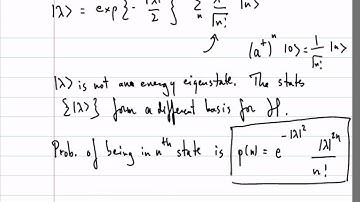 |λ⟩ = exp{-|λ|²/2} Σ_n λⁿ/√n! |n⟩
(a⁺)ⁿ |0⟩ = 1/√n! |n⟩
|λ⟩ is not an energy eigenstate. The states
{|λ⟩} form a different basis for ℋ.
Prob. of being in nᵗʰ state is p(n) = e^{-|λ|²} |λ|²ⁿ/n!